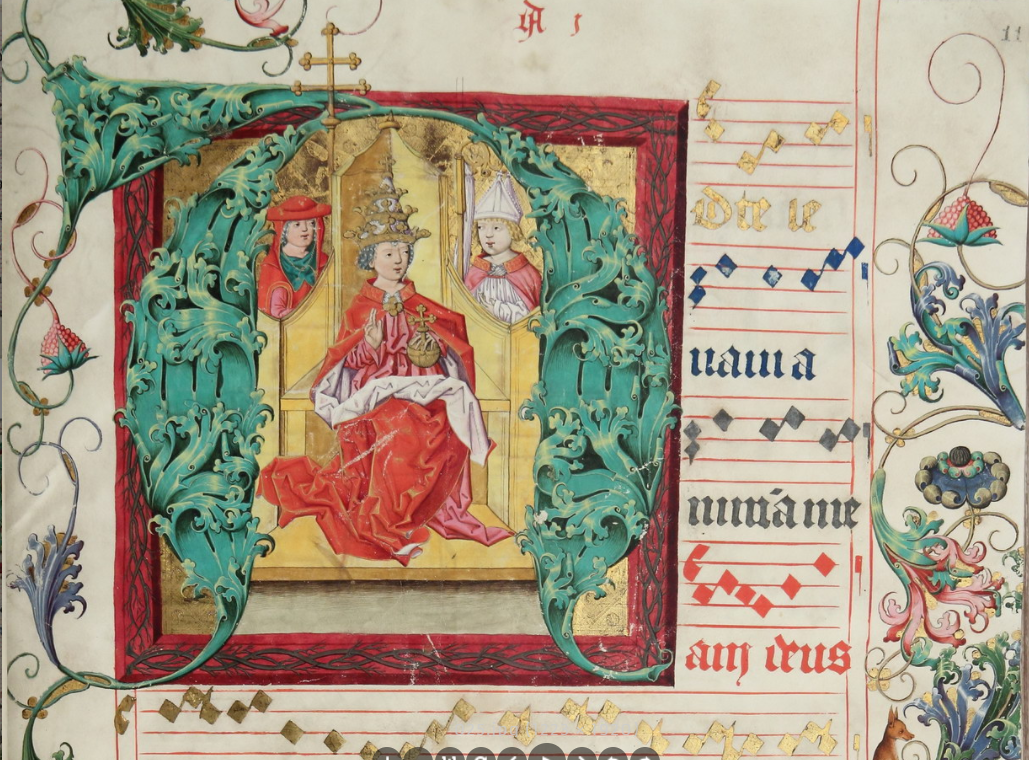 11
A
dte le
uaui a
nimā me
am deus